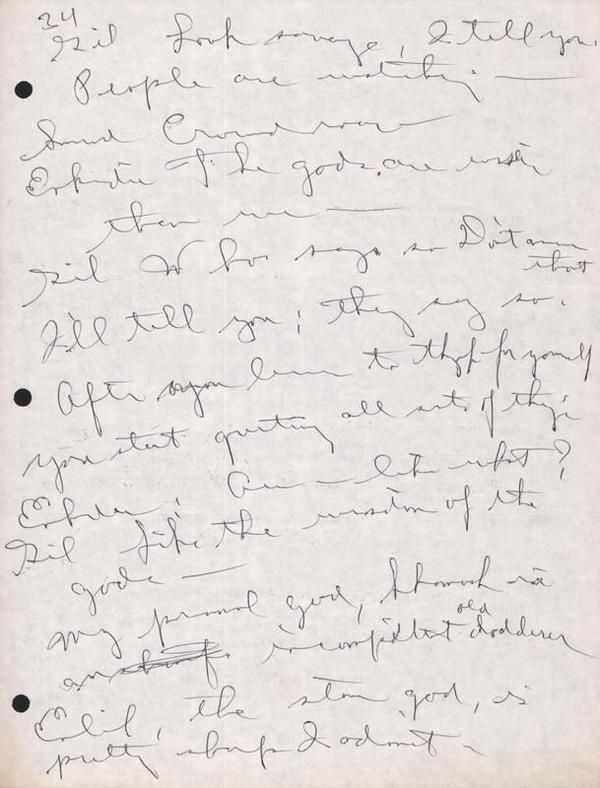 24
Gil Look savage, I tell you.
People are watching —
Sound Crowd roar
Enkidu The gods are wiser
than we —
Gil Who says so Don't answer that
I'll tell you; they say so.
After you learn to think for yourself
you start questing all sorts of things
Enkidu; — like what?
Gil Like the wisdom of the
gods —
My personal god, Shamash is
an incompetent old dodderer
Enlil, the storm god, is
pretty sharp I admit -